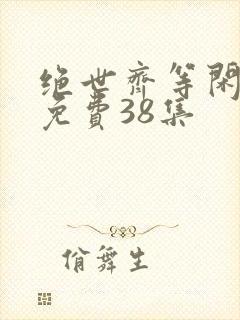 绝世齐等闲
免費38集
俏舞生